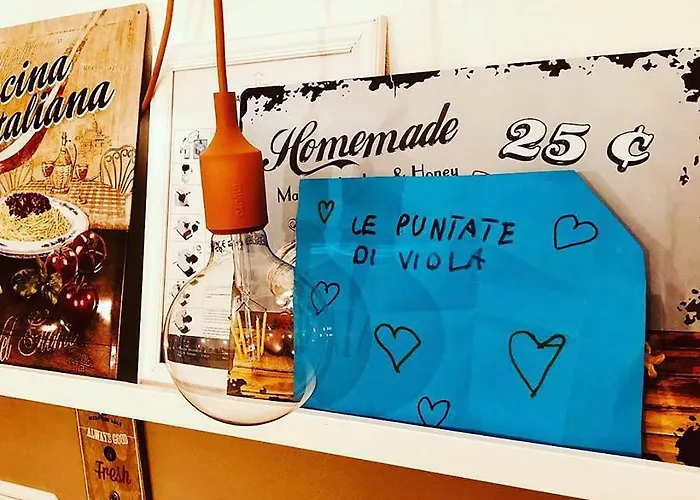 cina
taliana
Homemade 25 ¢
& Honey
LE PUNTATE
DI VIOLA
ALWAYS GOOD
Fresh